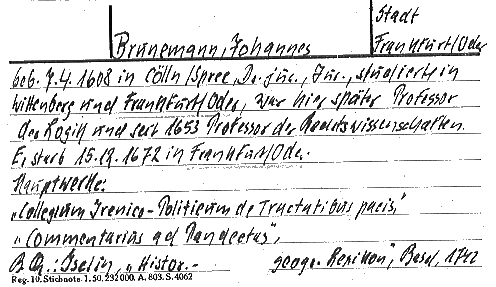 Stadt
Brunemann, Johannes Frankfurt/Oder
geb. 7.4. 1608 in Cölln/Spree, Dr. jur., Jur., studierte in
Wittenberg und Frankfurt/Oder, war hier später Professor
der Logik und seit 1653 Professor der Rechtswissenschaften.
Er starb 15.12.1672 in Frankfurt/Oder.
Hauptwerke:
„Collegium Irenico-Politicum de Tractatibus pacis",
„Commentarius ad Pandectas",
B.Qu.: Iselin, „Histor.- geogr. Lexikon", Basel, 1742
Reg. 10. Stichnote. 1. 50. 232000. A. 803. S. 4062